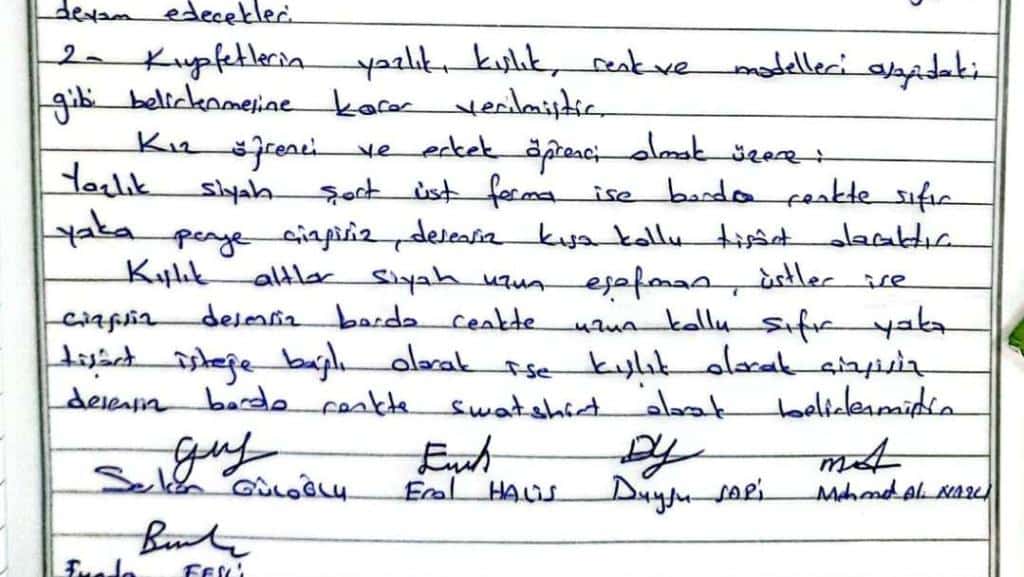 devam edecekleri
2- Kıyafetlerin yazlık, kışlık, renk ve modelleri aşağıdaki
gibi belirlenmesine karar verilmiştir.
Kız öğrenci ve erkek öğrenci olmak üzere :
Yazlık siyah şort üst forma ise bordo renkte sıfır
yaka penye çizgisiz, desensiz kısa kollu tişört olacaktır
Kışlık altlar siyah uzun eşofman, üstler ise
çizgisiz desensiz bordo renkte uzun kollu sıfır yaka
tişört isteğe bağlı olarak ise kışlık olarak çizgisiz
desensiz bordo renkte swatshirt olarak belirlenmiştir
Serkan GÜLOĞLU Erol HALİS Duygu SAPİ Mehmet Ali